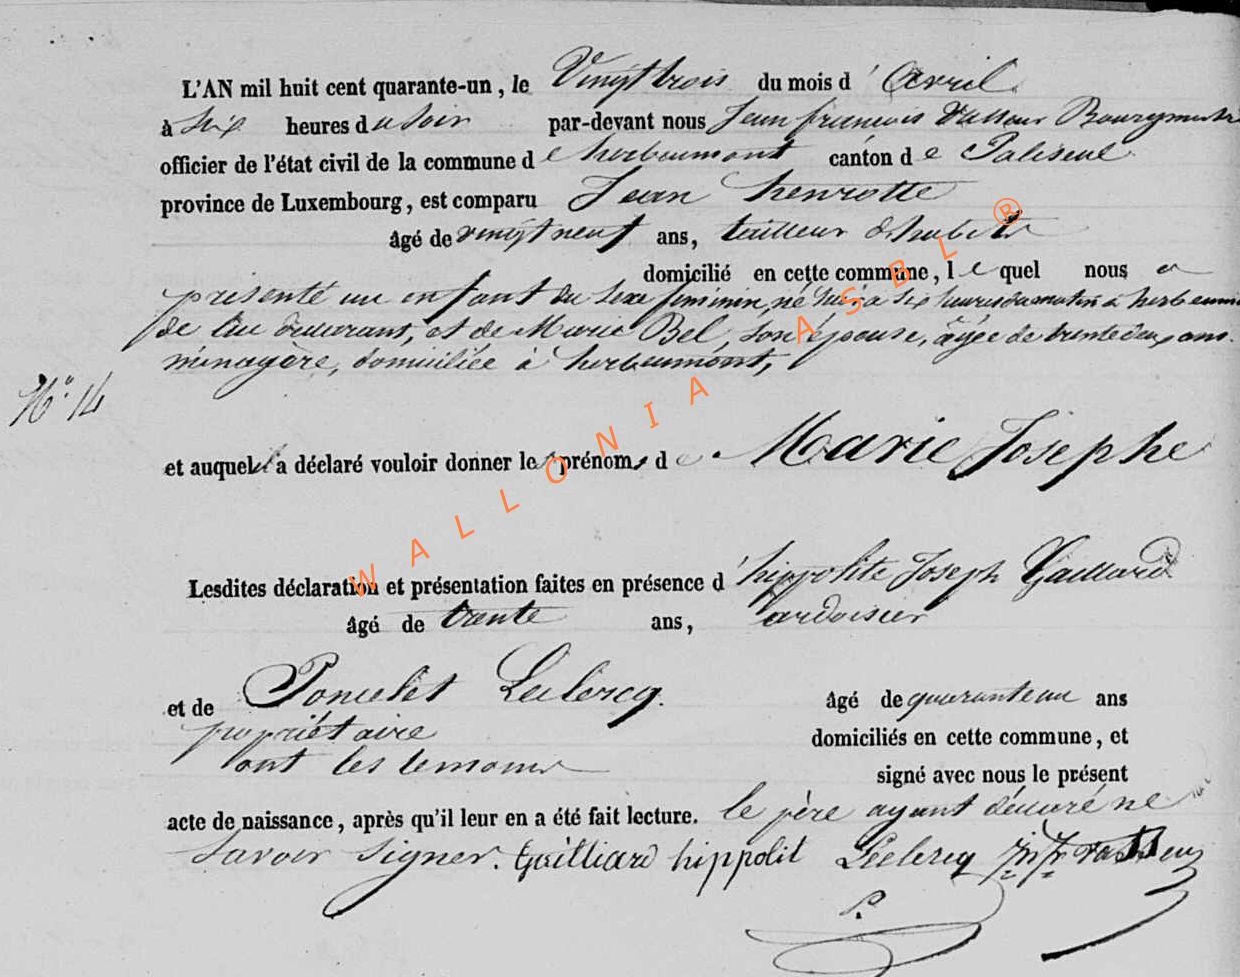 L'AN mil huit cent quarante-un, le Vingt trois du mois d' avril
à Six heures du Soir par-devant nous Jean françois Vasseur Bourgmestre
officier de l'état civil de la commune de herbeumont canton de Paliseul
province de Luxembourg, est comparu Jean henrotte
âgé de vingt neuf ans, tailleur d'habits
domicilié en cette commune, lequel nous a
présenté un enfant du Sexe féminin, né à Six heures du matin à herbeumont
de lui déclarant, et de Marie Bel, son épouse, âgée de trente deux ans.
ménagère, domiciliée à herbeumont,
N° 14
et auquel il a déclaré vouloir donner les prénoms de Marie Josephe
Lesdites déclaration et présentation faites en présence d' hippolite Joseph Gaillard
âgé de trente ans, ardoisier
et de Poncelet Leclercq. âgé de quarante un ans
propriétaire
domiciliés en cette commune, et
ont les temoins
signé avec nous le présent
acte de naissance, après qu'il leur en a été fait lecture. le père ayant déclaré ne
Savoir Signer. Gailliard hippolit Leclercq
P.
WALLONIA ASBL ®